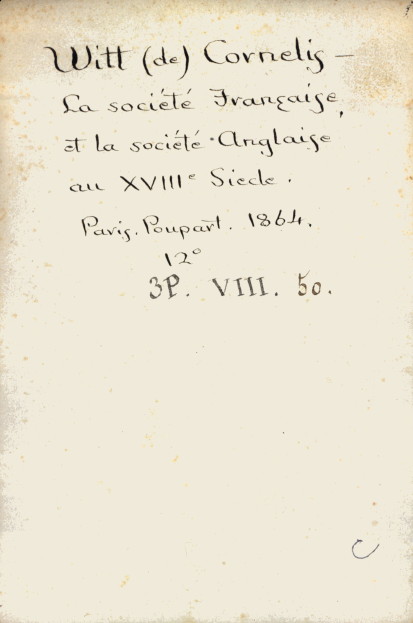 Witt (de) Cornelis –
La société Française,
et la société Anglaise
au XVIIIe Siècle.
Paris. Poupart. 1864.
12°
3P. VIII. 50.